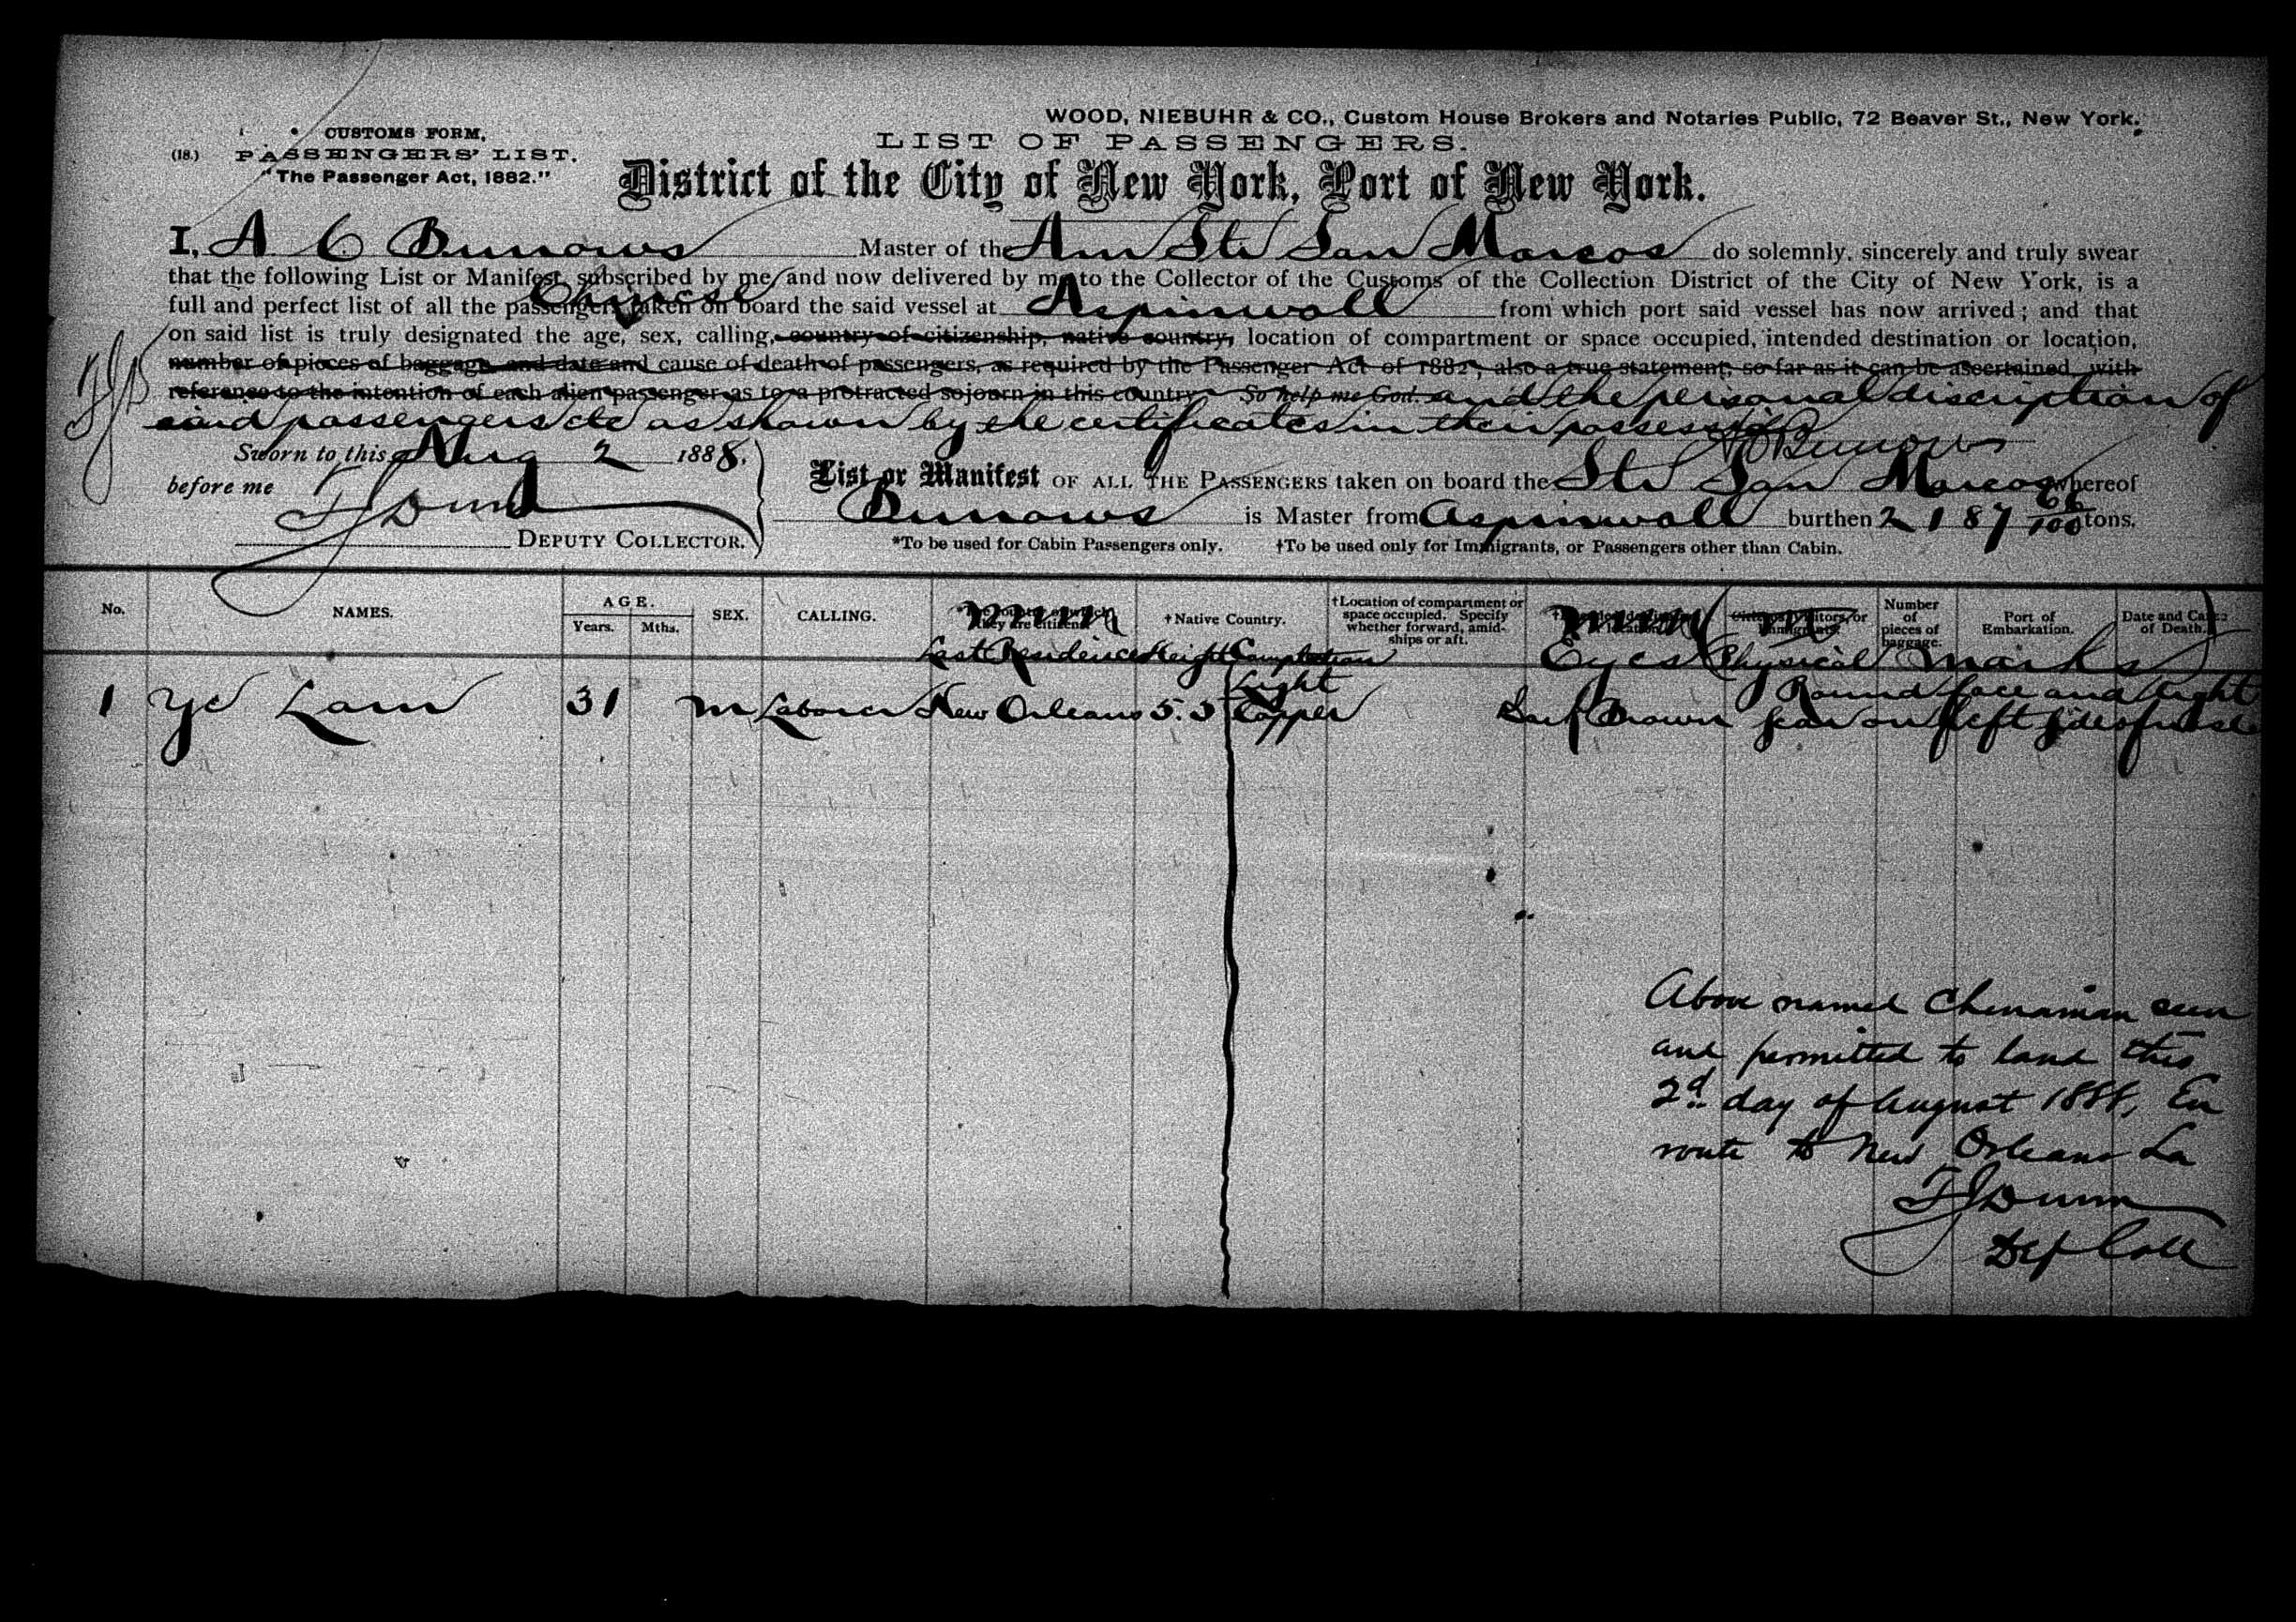 WOOD, NIEBUHR & CO., Custom House Brokers and Notaries Public, 72 Beaver St., New York.
CUSTOMS FORM,
(18.) PASSENGERS' LIST.
"The Passenger Act, 1882."
LIST OF PASSENGERS.
District of the City of New York, Port of New York.
I, A C Burrows Master of the Am Str San Marcos do solemnly, sincerely and truly swear
that the following List or Manifest, subscribed by me, and now delivered by me to the Collector of the Customs of the Collection District of the City of New York, is a
Chinese
full and perfect list of all the passengers taken on board the said vessel at Aspinwall from which port said vessel has now arrived; and that
on said list is truly designated the age, sex, calling, country of citizenship, native country, location of compartment or space occupied, intended destination or location,
number of pieces of baggage and date and cause of death of passengers, as required by the Passenger Act of 1882; also a true statement, so far as it can be ascertained, with
reference to the intention of each alien passenger as to a protracted sojourn in this country. So help me God. and the personal discription of
said passengers etc as shown by the certificates in their possession
A C Burrows
Sworn to this Aug 2 1888,
before me
F J Dunn
DEPUTY COLLECTOR.
List or Manifest OF ALL THE PASSENGERS taken on board the Str San Marcos whereof
Burrows is Master from Aspinwall burthen 2187 /100 tons.
*To be used for Cabin Passengers only. †To be used only for Immigrants, or Passengers other than Cabin.
No. NAMES. AGE. Years. Mths. SEX. CALLING. †Native Country. †Location of compartment or space occupied. Specify whether forward, amidships or aft. Number of pieces of baggage. Port of Embarkation. Date and Cause of Death.
Last Residence Height Complection Eyes (Physical marks)
Light Round face and light
1 Ye Lam 31 m Laborer New Orleans 5.3 Copper Dark Brown scar on left side of nose
Above named Chinaman seen
and permitted to land this
2d day of August 1888, En
route to New Orleans La
F J Dunn
Dep Coll